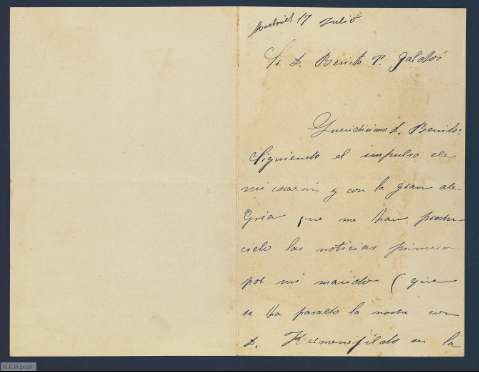 Madrid 17 Julio
Sr. D. Benito P. Galdós
Queridísimo D. Benito:
Siguiendo el impulso de
mi corazón y con la gran ale-
gría que me han produ-
cido las noticias primero
por mi marido (que
se ha pasado la noche con
D. Hermenegildo en la